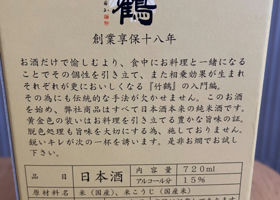 鶴
創業享保十八年
お酒だけで愉しむより、食中にお料理と一緒になる
ことでその個性を引き立て、また相乗効果が生まれ
それぞれが更においしくなる『竹鶴』の入門編。
その為にも伝統的な手法が欠かせません。このお酒
を始め、弊社商品はすべて日本酒本来の純米酒です。
黄金色の装いはお料理を引き立てる豊かな旨味の証。
脱色処理も旨味を大切にする為、施しておりません。
鋭いキレが次の一杯を誘います。是非お燗でお試し
下さい。
品目 日本酒 内容量 720ml
アルコール分 15%
原材料名 米(国産)、米こうじ(国産米)